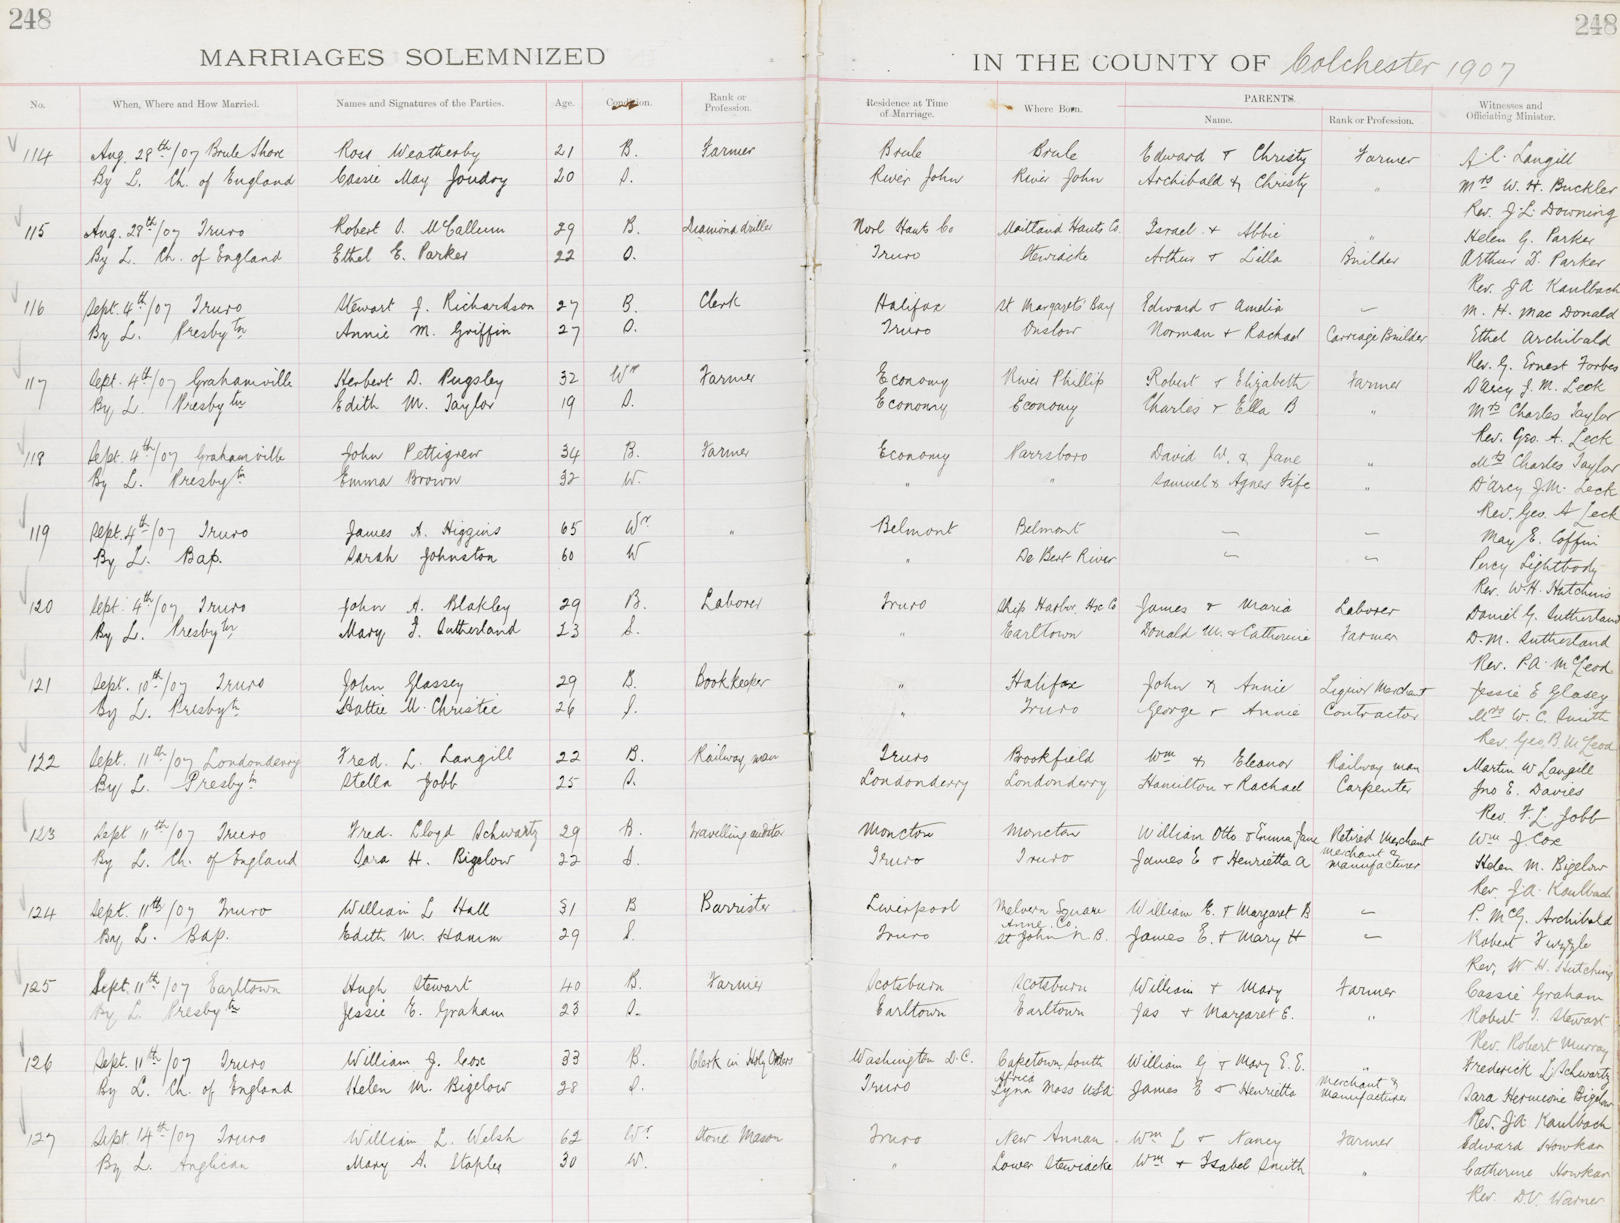 248
248
MARRIAGES SOLEMNIZED IN THE COUNTY OF Colchester 1907
No. When, Where and How Married. Names and Signatures of the Parties. Age. Condition. Rank or Profession. Residence at Time of Marriage. Where Born. PARENTS. Name. Rank or Profession. Witnesses and Officiating Minister.
114 Aug. 28th/07 Brule Shore Ross Weatherby 21 B. Farmer Brule Brule Edward & Christy Farmer A. C. Langill
By L. Ch. of England Cassie May Joudry 20 S. River John River John Archibald & Christy " Mrs W. H. Buckler
Rev. J. L. Downing
115 Aug. 28th/07 Truro Robert O. McCallum 29 B. Diamond driller Noel Hants Co Maitland Hants Co. Israel & Abbie " Helen G. Parker
By L. Ch. of England Ethel E. Parker 22 S. Truro Stewiacke Arthur & Lilla Builder Arthur D. Parker
Rev. J A Kaulbach
116 Sept. 4th/07 Truro Stewart J. Richardson 27 B. Clerk Halifax St Margarets Bay Edward & Amelia — M. H. Mac Donald
By L. Presbytn Annie M. Griffin 27 S. Truro Onslow Norman & Rachael Carriage Builder Ethel Archibald
Rev. G. Ernest Forbes
117 Sept. 4th/07 Grahamville Herbert D. Pugsley 32 Wr Farmer Economy River Phillip Robert & Elizabeth Farmer D'Arcy J. M. Leck
By L. Presbytn Edith M. Taylor 19 S. Economy Economy Charles & Ella B " Mrs Charles Taylor
Rev. Geo. A. Leck
118 Sept. 4th/07 Grahamville John Pettigrew 34 B. Farmer Economy Parrsboro David W. & Jane " Mrs Charles Taylor
By L. Presbytn Emma Brown 32 W. " " Samuel & Agnes Fife " D'Arcy J. M. Leck
Rev. Geo. A Leck
119 Sept. 4th/07 Truro James A. Higgins 65 Wr " Belmont Belmont — — May E. Coffin
By L. Bap. Sarah Johnston 60 W " De Bert River — — Percy Lightbody
Rev. W. H. Hutchins
120 Sept. 4th/07 Truro John A. Blakley 29 B. Laborer Truro Ship Harbor, Hx Co James & Maria Laborer Daniel G. Sutherland
By L. Presbytn Mary J. Sutherland 23 S. " Earltown Donald M. & Catherine Farmer D. M. Sutherland
Rev. P. A. McLeod
121 Sept. 10th/07 Truro John Glassey 29 B. Bookkeeper " Halifax John & Annie Liquor Merchant Jessie E Glasey
By L. Presbytn Hattie M. Christie 26 S. " Truro George & Annie Contractor Mrs W. C. Smith
Rev. Geo. B. McLeod
122 Sept. 11th/07 Londonderry Fred. L. Langill 22 B. Railway man Truro Brookfield Wm & Eleanor Railway man Martin W Langill
By L. Presbytn Stella Jobb 25 S. Londonderry Londonderry Hamilton & Rachael Carpenter Jno E. Davies
Rev. F L Jobb
123 Sept 11th/07 Truro Fred. Lloyd Schwartz 29 B. Travelling auditor Moncton Moncton William Otto & Emma Jane Retired Merchant Wm J. Cox
By L. Ch. of England Sara H. Bigelow 22 S. Truro Truro James E & Henrietta A Merchant & Manufacturer Helen M. Bigelow
Rev. J. A. Kaulbach
124 Sept. 11th/07 Truro William L Hall 31 B Barrister Liverpool Melvern Square Anne. Co. William E. & Margaret B — P. McG. Archibald
By L. Bap. Edith M. Hamm 29 S. Truro St John N. B. James E. & Mary H — Robert
Rev. W. H. Hutchins
125 Sept. 11th/07 Earltown Hugh Stewart 40 B. Farmer Scotsburn Scotsburn William & Mary Farmer Cassie Graham
By L. Presbytn Jessie E. Graham 23 S. Earltown Earltown Jas & Margaret E. " Robert J. Stewart
Rev. Robert Murray
126 Sept. 11th/07 Truro William J. Cox 33 B. Clerk in Holy Orders Washington D. C. Capetown South Africa William G & Mary E. E. " Frederick L. Schwartz
By L. Ch. of England Helen M. Bigelow 28 S. Truro Lynn Mass USA James E & Henrietta Merchant & Manufacturer Sara Hermione Bigelow
Rev. J. A. Kaulbach
127 Sept. 14th/07 Truro William L. Welsh 62 Wr Stone Mason Truro New Annan Wm L & Nancy Farmer Edward Howkar
By L. Anglican Mary A. Staples 30 W. " Lower Stewiacke Wm & Isabel Smith " Catherine Howkar
Rev. D. V. Warner